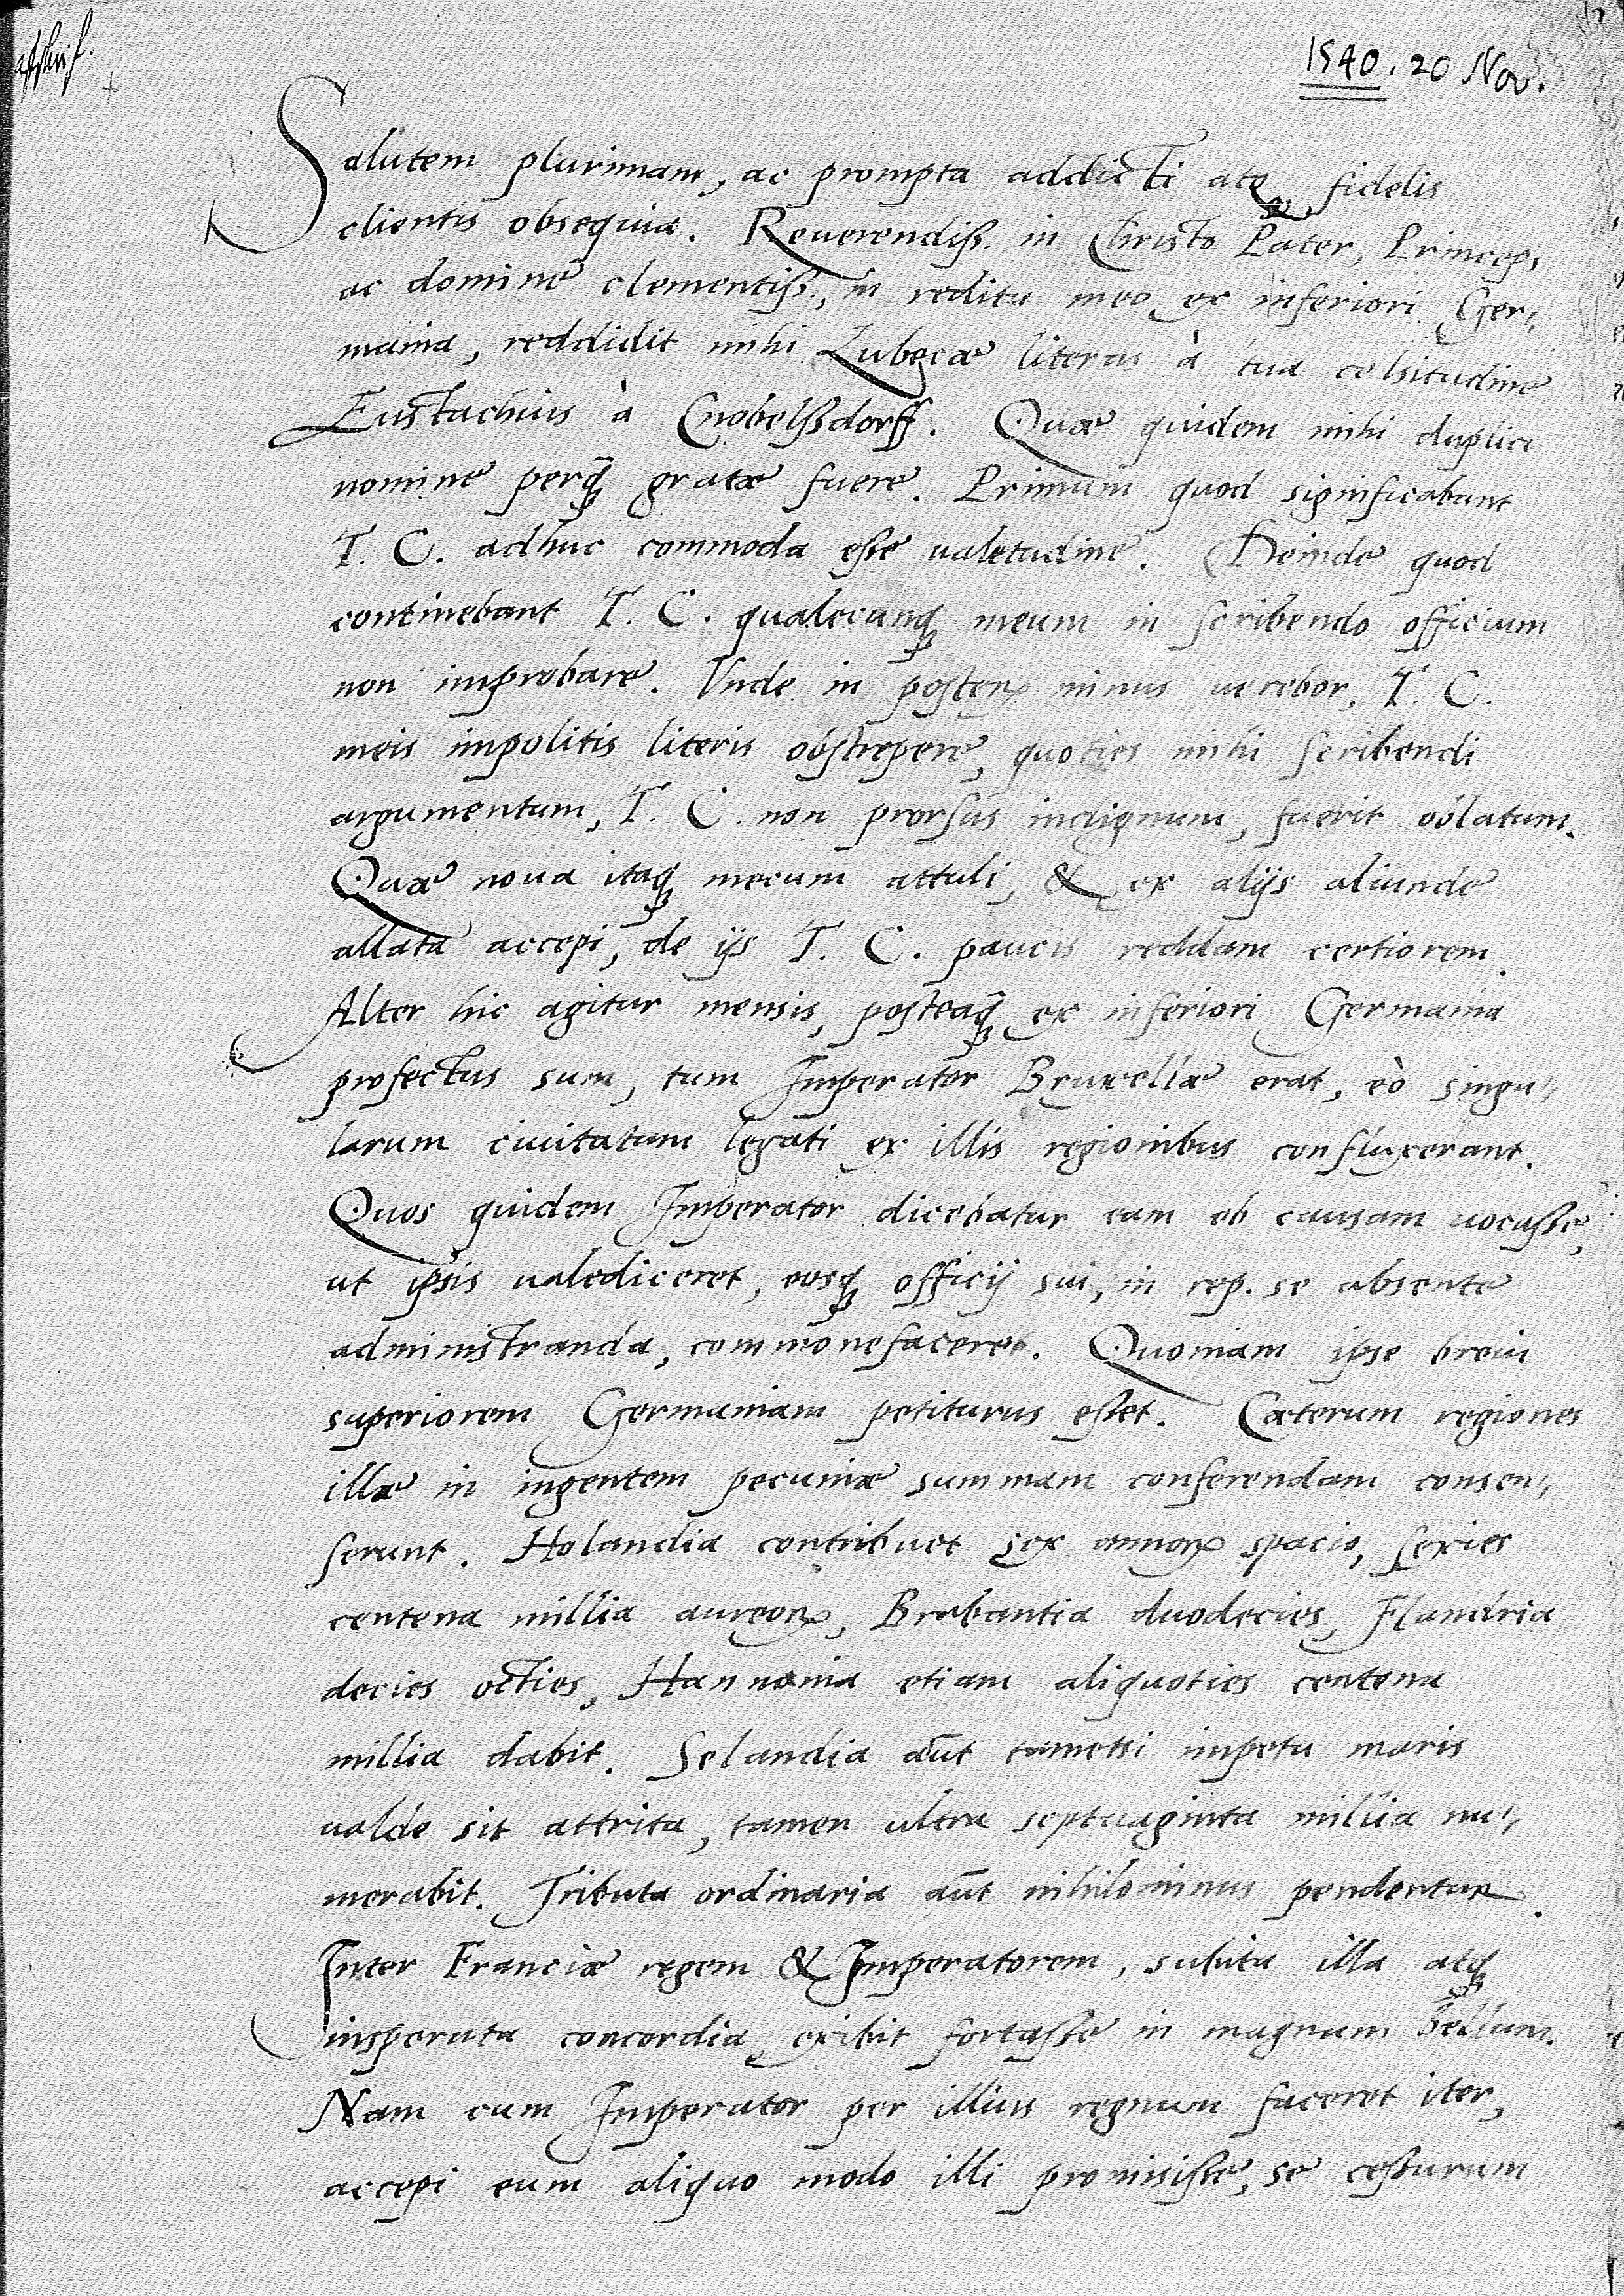 1540. 20 Nov.
Salutem plurimam, ac prompta addicti atq fidelis
clientis obsequia. Reuerendiss. in Christo Pater, Princeps
ac domine clementiss., in reditu meo ex inferiori Ger,,
mania, reddidit mihi Lubecæ literas à tua celsitudine
Eustachius à Cnobelssdorff. Quæ quidem mihi duplici
nomine perq̃ gratæ fuere. Primum quod significabant
T. C. adhuc commoda esse ualetudine. Deinde quod
continebant T. C. qualecunq meum in scribendo officium
non improbare. Vnde in posterꝝ minus uerebor, T. C.
meis impolitis literis obstrepere, quoties mihi scribendi
argumentum, T. C. non prorsus indignum, fuerit oblatum.
Quæ noua itaq mecum attuli, & ex alijs aliunde
allata accepi, de ijs T. C. paucis reddam certiorem.
Alter hic agitur mensis, posteaq̃ ex inferiori Germania
profectus sum, tum Imperator Bruxellæ erat, eò singu,,
larum ciuitatum legati ex illis regionibus confluxerant.
Quos quidem Imperator dicebatur eam ob causam uocasse,
ut ipsis ualediceret, eosq officij sui, in rep. se absente
administranda, commonefaceret. Quoniam ipse breui
superiorem Germaniam petiturus esset. Cæterum regiones
illæ in ingentem pecuniæ summam conferendam consen,,
serunt. Holandia contribuet sex annorꝝ spacio, sexies
centena millia aureorꝝ, Brabantia duodecies, Flandria
decies octies, Hannonia etiam aliquoties centena
millia dabit. Selandia aũt tametsi impetu maris
ualde sit attrita, tamen ultra septuaginta millia nu,,
merabit. Tributa ordinaria aũt nihilominus pendentur.
Inter Franciæ regem & Imperatorem, subita illa atq
insperata concordia, exibit fortasse in magnum bellum.
Nam cum Imperator per illius regnum faceret iter,
accepi eum aliquo modo illi promisisse, se cessurum